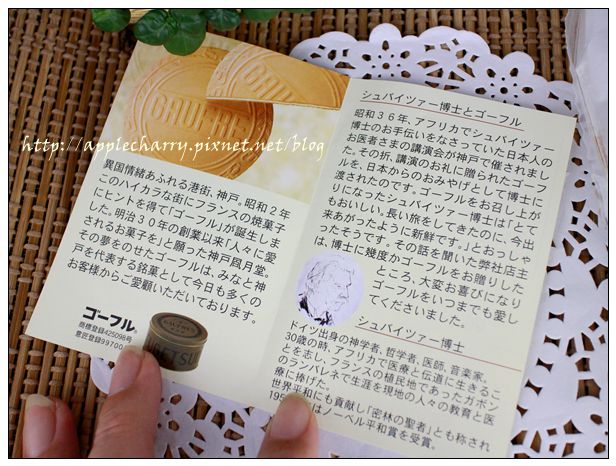 GAUFRE
http://applecharry.pixnet.net/blog
異国情緒あふれる港街、神戸。昭和2年
このハイカラな街にフランスの焼菓子
にヒントを得て「ゴーフル」が誕生しま
した。明治30年の創業以来「人々に愛
されるお菓子を」と願った神戸凮月堂。
その夢をのせたゴーフルは、みなと神
戸を代表する銘菓として今日も多くの
お客様からご愛顧いただいております。
ゴーフル®
商標登録425098号
意匠登録99700
シュバイツァー博士とゴーフル
昭和36年、アフリカでシュバイツァー
博士のお手伝いをなさっていた日本人の
お医者さまの講演会が神戸で催されまし
た。その折、講演のお礼に贈られたゴーフ
ルを、日本からのおみやげとして博士に
渡されたのです。ゴーフルをお召し上が
りになったシュバイツァー博士は「とて
もおいしい。長い旅をしてきたのに、今出
来あがったように新鮮です。」とおっしゃ
ったそうです。その話を聞いた弊社店主
は、博士に幾度かゴーフルをお贈りした
ところ、大変お喜びになり
ゴーフルをいつまでも愛し
てくださいました。
シュバイツァー博士
ドイツ出身の神学者、哲学者、医師、音楽家。
30歳の時、アフリカで医療と伝道に生きるこ
とを志し、フランスの植民地であったガボン
のランバレネで生涯を現地の人々の教育と医
療に捧げた。
世界平和にも貢献し「密林の聖者」とも称され
195
はノーベル平和賞を受賞。